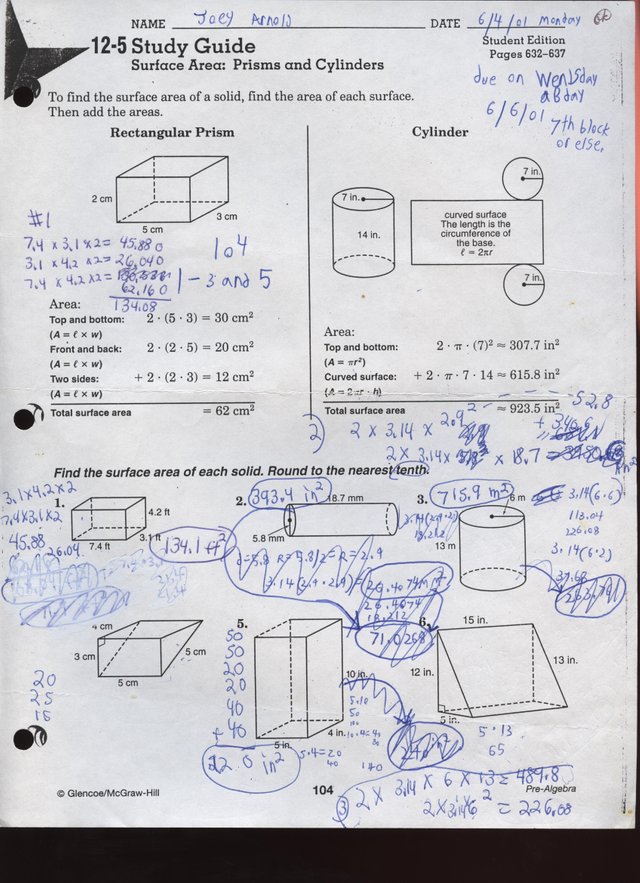 NAME Joey Arnold DATE 6/4/01 monday
12-5 Study Guide
Surface Area: Prisms and Cylinders
Student Edition
Pages 632–637
due on Wendsday
a B day
6/6/01 7th block
or else.
To find the surface area of a solid, find the area of each surface.
Then add the areas.
Rectangular Prism
2 cm
3 cm
5 cm
#1
7.4 x 3.1 x 2 = 45.880
3.1 x 4.2 x 2 = 26.040
7.4 x 4.2 x 2 =
62.160
134.08
104
1 - 3 and 5
Area:
Top and bottom: 2 · (5 · 3) = 30 cm²
(A = ℓ × w)
Front and back: 2 · (2 · 5) = 20 cm²
(A = ℓ × w)
Two sides: + 2 · (2 · 3) = 12 cm²
(A = ℓ × w)
Total surface area = 62 cm²
Cylinder
7 in.
14 in.
7 in.
curved surface
The length is the
circumference of
the base.
ℓ = 2πr
7 in.
Area:
Top and bottom: 2 · π · (7)² ≈ 307.7 in²
(A = πr²)
Curved surface: + 2 · π · 7 · 14 ≈ 615.8 in²
(A = 2πr · h)
Total surface area ≈ 923.5 in²
52.8
2) 2 x 3.14 x 2.9²
2 x 3.14 x x 18.7 =
Find the surface area of each solid. Round to the nearest tenth.
3.1 x 4.2 x 2
7.4 x 3.1 x 2
45.88
26.04
1.
4.2 ft
3.1 ft
7.4 ft
134.1 ft²
2. 393.4 in²
18.7 mm
5.8 mm
d = 5.8 R = 5.8/2 = R = 2.9
3.14 (2.9 · 2.9) = 26.4074 mm²
26.4074
71.0268
3. 715.9 m²
6 m
13 m
3.14 (6·6)
113.04
226.08
3.14 (6·2)
37.68
4 cm
3 cm
5 cm
5 cm
20
25
15
5.
50
50
20
20
40
+ 40
220 in²
10 in.
4 in.
5 in.
5·10
50
10·4=40
5·4=20
40
140
6.
15 in.
12 in.
13 in.
5 in.
5·13
65
3) 2 x 3.14 x 6 x 13 = 489.8
2 x 3.14 x 6² = 226.08
© Glencoe/McGraw-Hill
104
Pre-Algebra